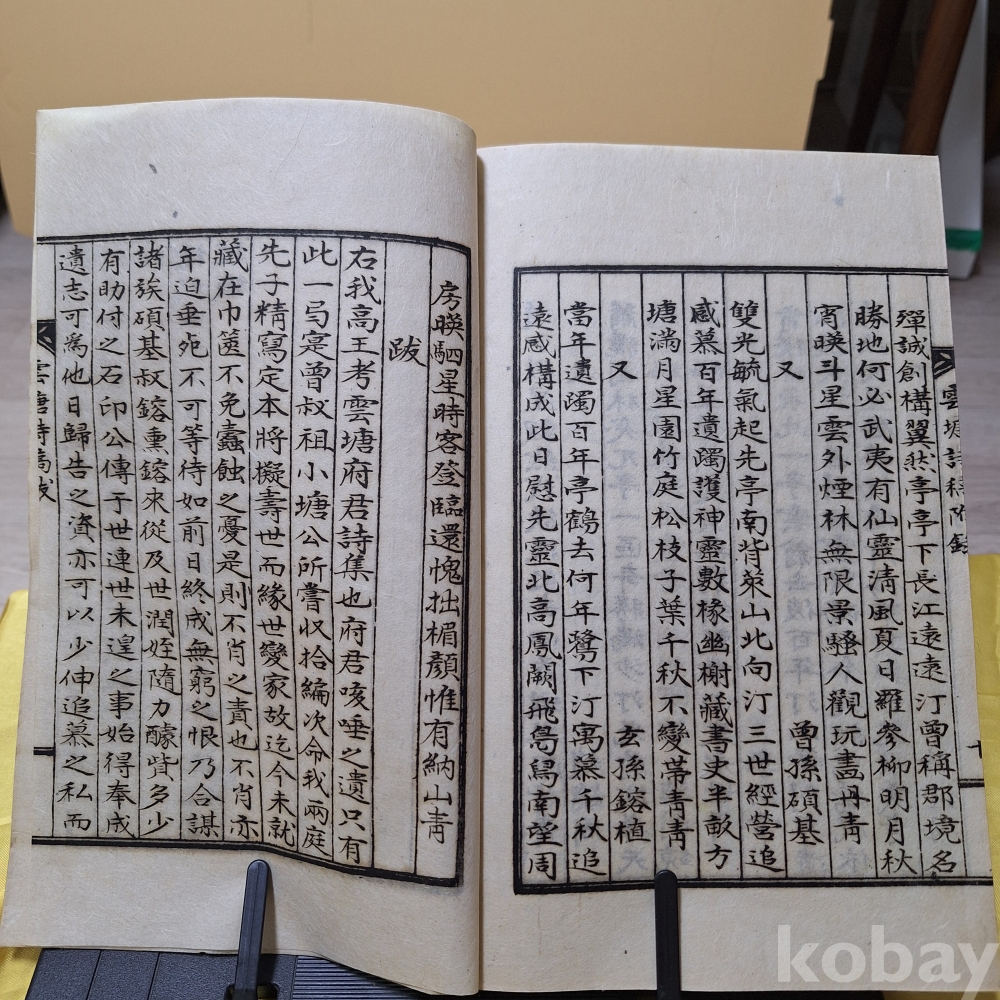 雲塘詩稿附錄
殫誠創構翼然亭亭下長江遠遠汀曾稱郡境名
勝地何必武夷有仙靈淸風夏日羅參柳明月秋
宵暎斗星雲外煙林無限景騷人觀玩畫丹靑
又
曾孫碩基
雙光毓氣起先亭南背萊山北向汀三世經營追
感慕百年遺躅護神靈數椽幽榭藏書史半畝方
塘滿月星園竹庭松枝子葉千秋不變蔕靑靑
又
玄孫鎔植
當年遺躅百年亭鶴去何年鷺下汀寓慕千秋追
遠感構成此日慰先靈北高鳳闕飛鳧舃南望周
房暎駟星時客登臨還愧拙楣顏惟有納山靑
跋
右我高王考雲塘府君詩集也府君咳唾之遺只有
此一弓寔曾叔祖小塘公所嘗収拾編次命我兩庭
先子精寫定本將擬壽世而緣世變家故迄今未就
藏在巾篋不免蠹蝕之憂是則不肖之責也不肖亦
年迫垂死不可等待如前日終成無窮之恨乃合謀
諸族碩基叔鎔熏鎔來從及世潤姪隨力醵貲多少
有助付之石印公傳于世連世未遑之事始得奉成
遺志可爲他日歸告之資亦可以少伸追慕之私而
雲塘詩稿跋
kobay